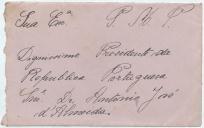 Sua Exª
Digníssimo Presidente da
Republica Portuguesa
Snr. Dr. António José
d'Almeida